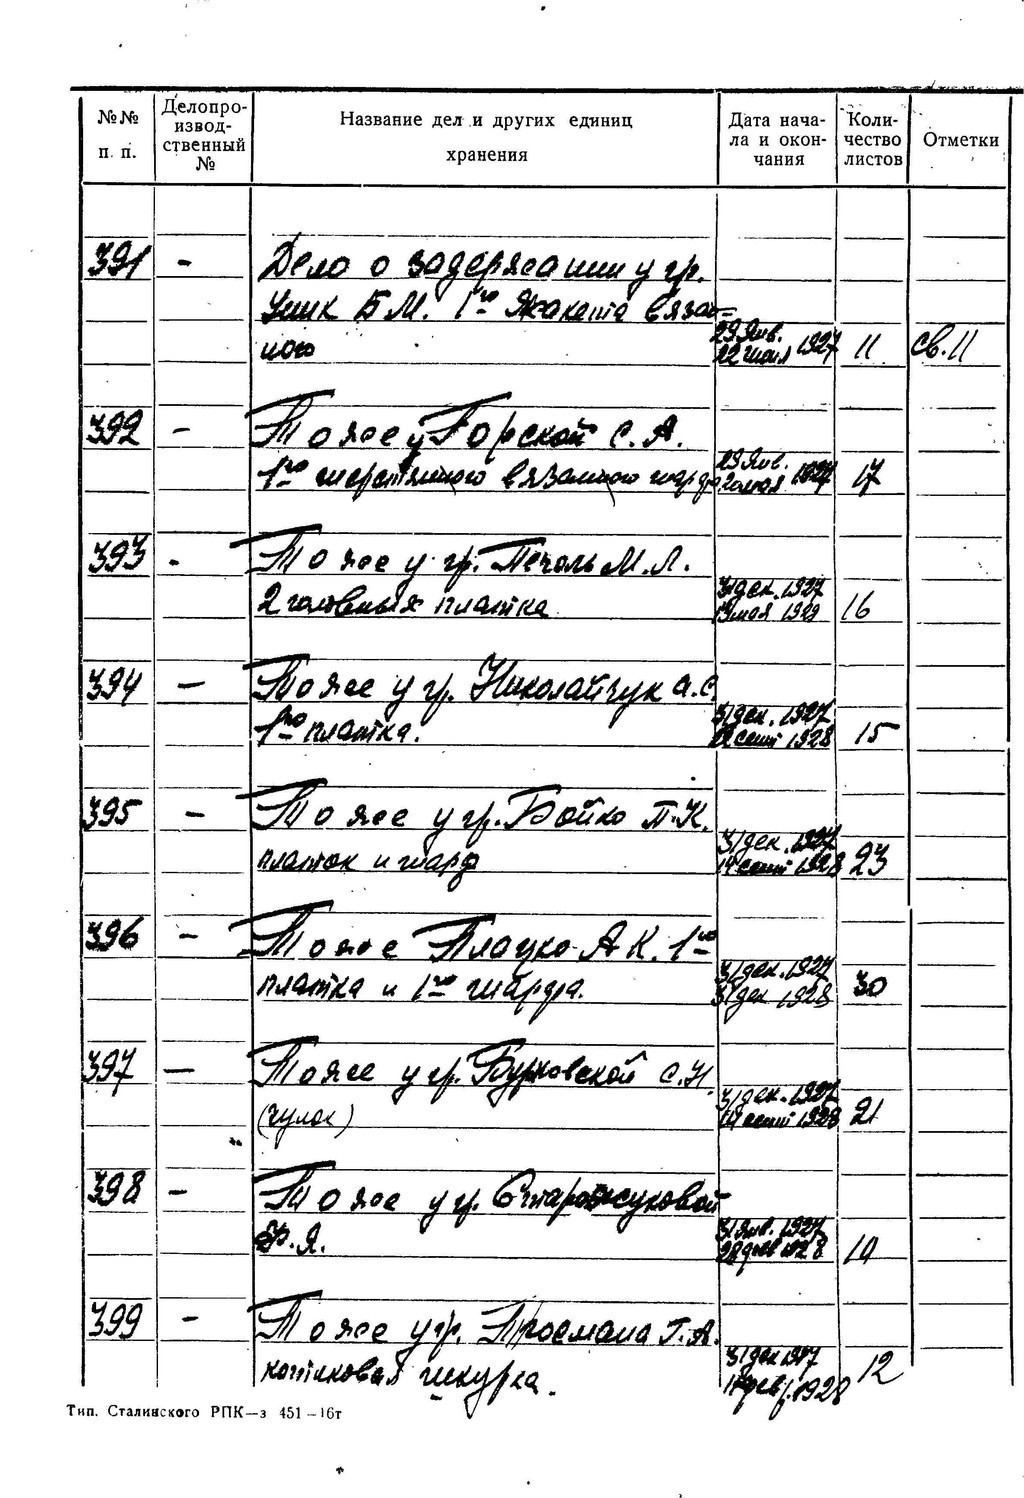 №№ п. п.
Делопро-
извод-
ственный
№
Название дел и других единиц
хранения
Дата нача-
ла и окон-
чания
Коли-
чество
листов
Отметки
391 - Дело о задержании у гр.
Уник Б.М. 1го Жакета вязан=
ного 29 Янв. 22 1927 11 св. 11
392 - То же у Горской С. А.
1го шерстяного вязаного шарфа 29 Янв. 20 мая 1927 17
393 - То же у гр. Печоль М.Л.
2 головных платка 31 дек. 1927 13 мая 1929 16
394 - То же у гр. Николайчук А.С.
1го платка. 31 дек. 1927 22 сент 1928 15
395 - То же у гр. Бойко П.К.
платок и шарф 31 дек. 1927 14 сент 1928 23
396 - То же Плацко А К. 1го
платка и 1го шарфа. 31 дек. 1927 31 дек 1928 30
397 - То же у гр. Бурковской С.И
(чулок) 31 дек. 1927 сент 1928 21
398 - То же у гр. Старожуковой
Ф. Я. 31 Янв. 1927 28 фев 1928 10
399 - То же у гр. Просмана Г.А.
котиковая шкурка. 31 дек 1927 фев. 1928 12
Тип. Сталинского РПК—з 451—16т